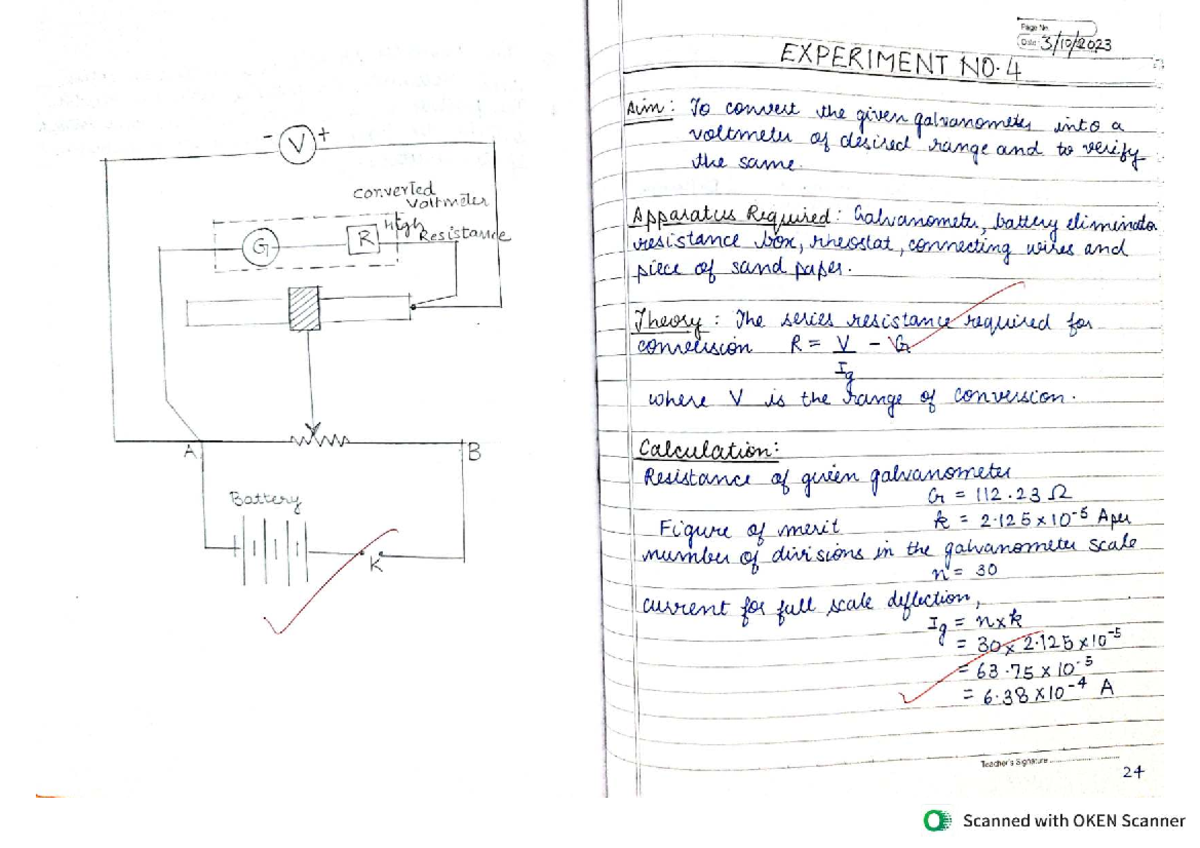 - V +
converted
voltmeter
G R High Resistance
A B
Battery
K
Page No.
Date 3/10/2023
EXPERIMENT NO. 4
Aim : To convert the given galvanometer into a
voltmeter of desired range and to verify
the same.
Apparatus Required : Galvanometer, battery eliminator
resistance box, rheostat, connecting wires and
piece of sand paper.
Theory : The series resistance required for
conversion R = V/Ig - G
where V is the range of conversion.
Calculation:
Resistance of given galvanometer
G = 112.23 Ω
Figure of merit k = 2.125 × 10⁻⁵ Aper
number of divisions in the galvanometer scale
n = 30
current for full scale deflection,
Ig = n×k
= 30 × 2.125 × 10⁻⁵
= 63.75 × 10⁻⁵
= 6.38 × 10⁻⁴ A
Teacher's Signature
24
Scanned with OKEN Scanner